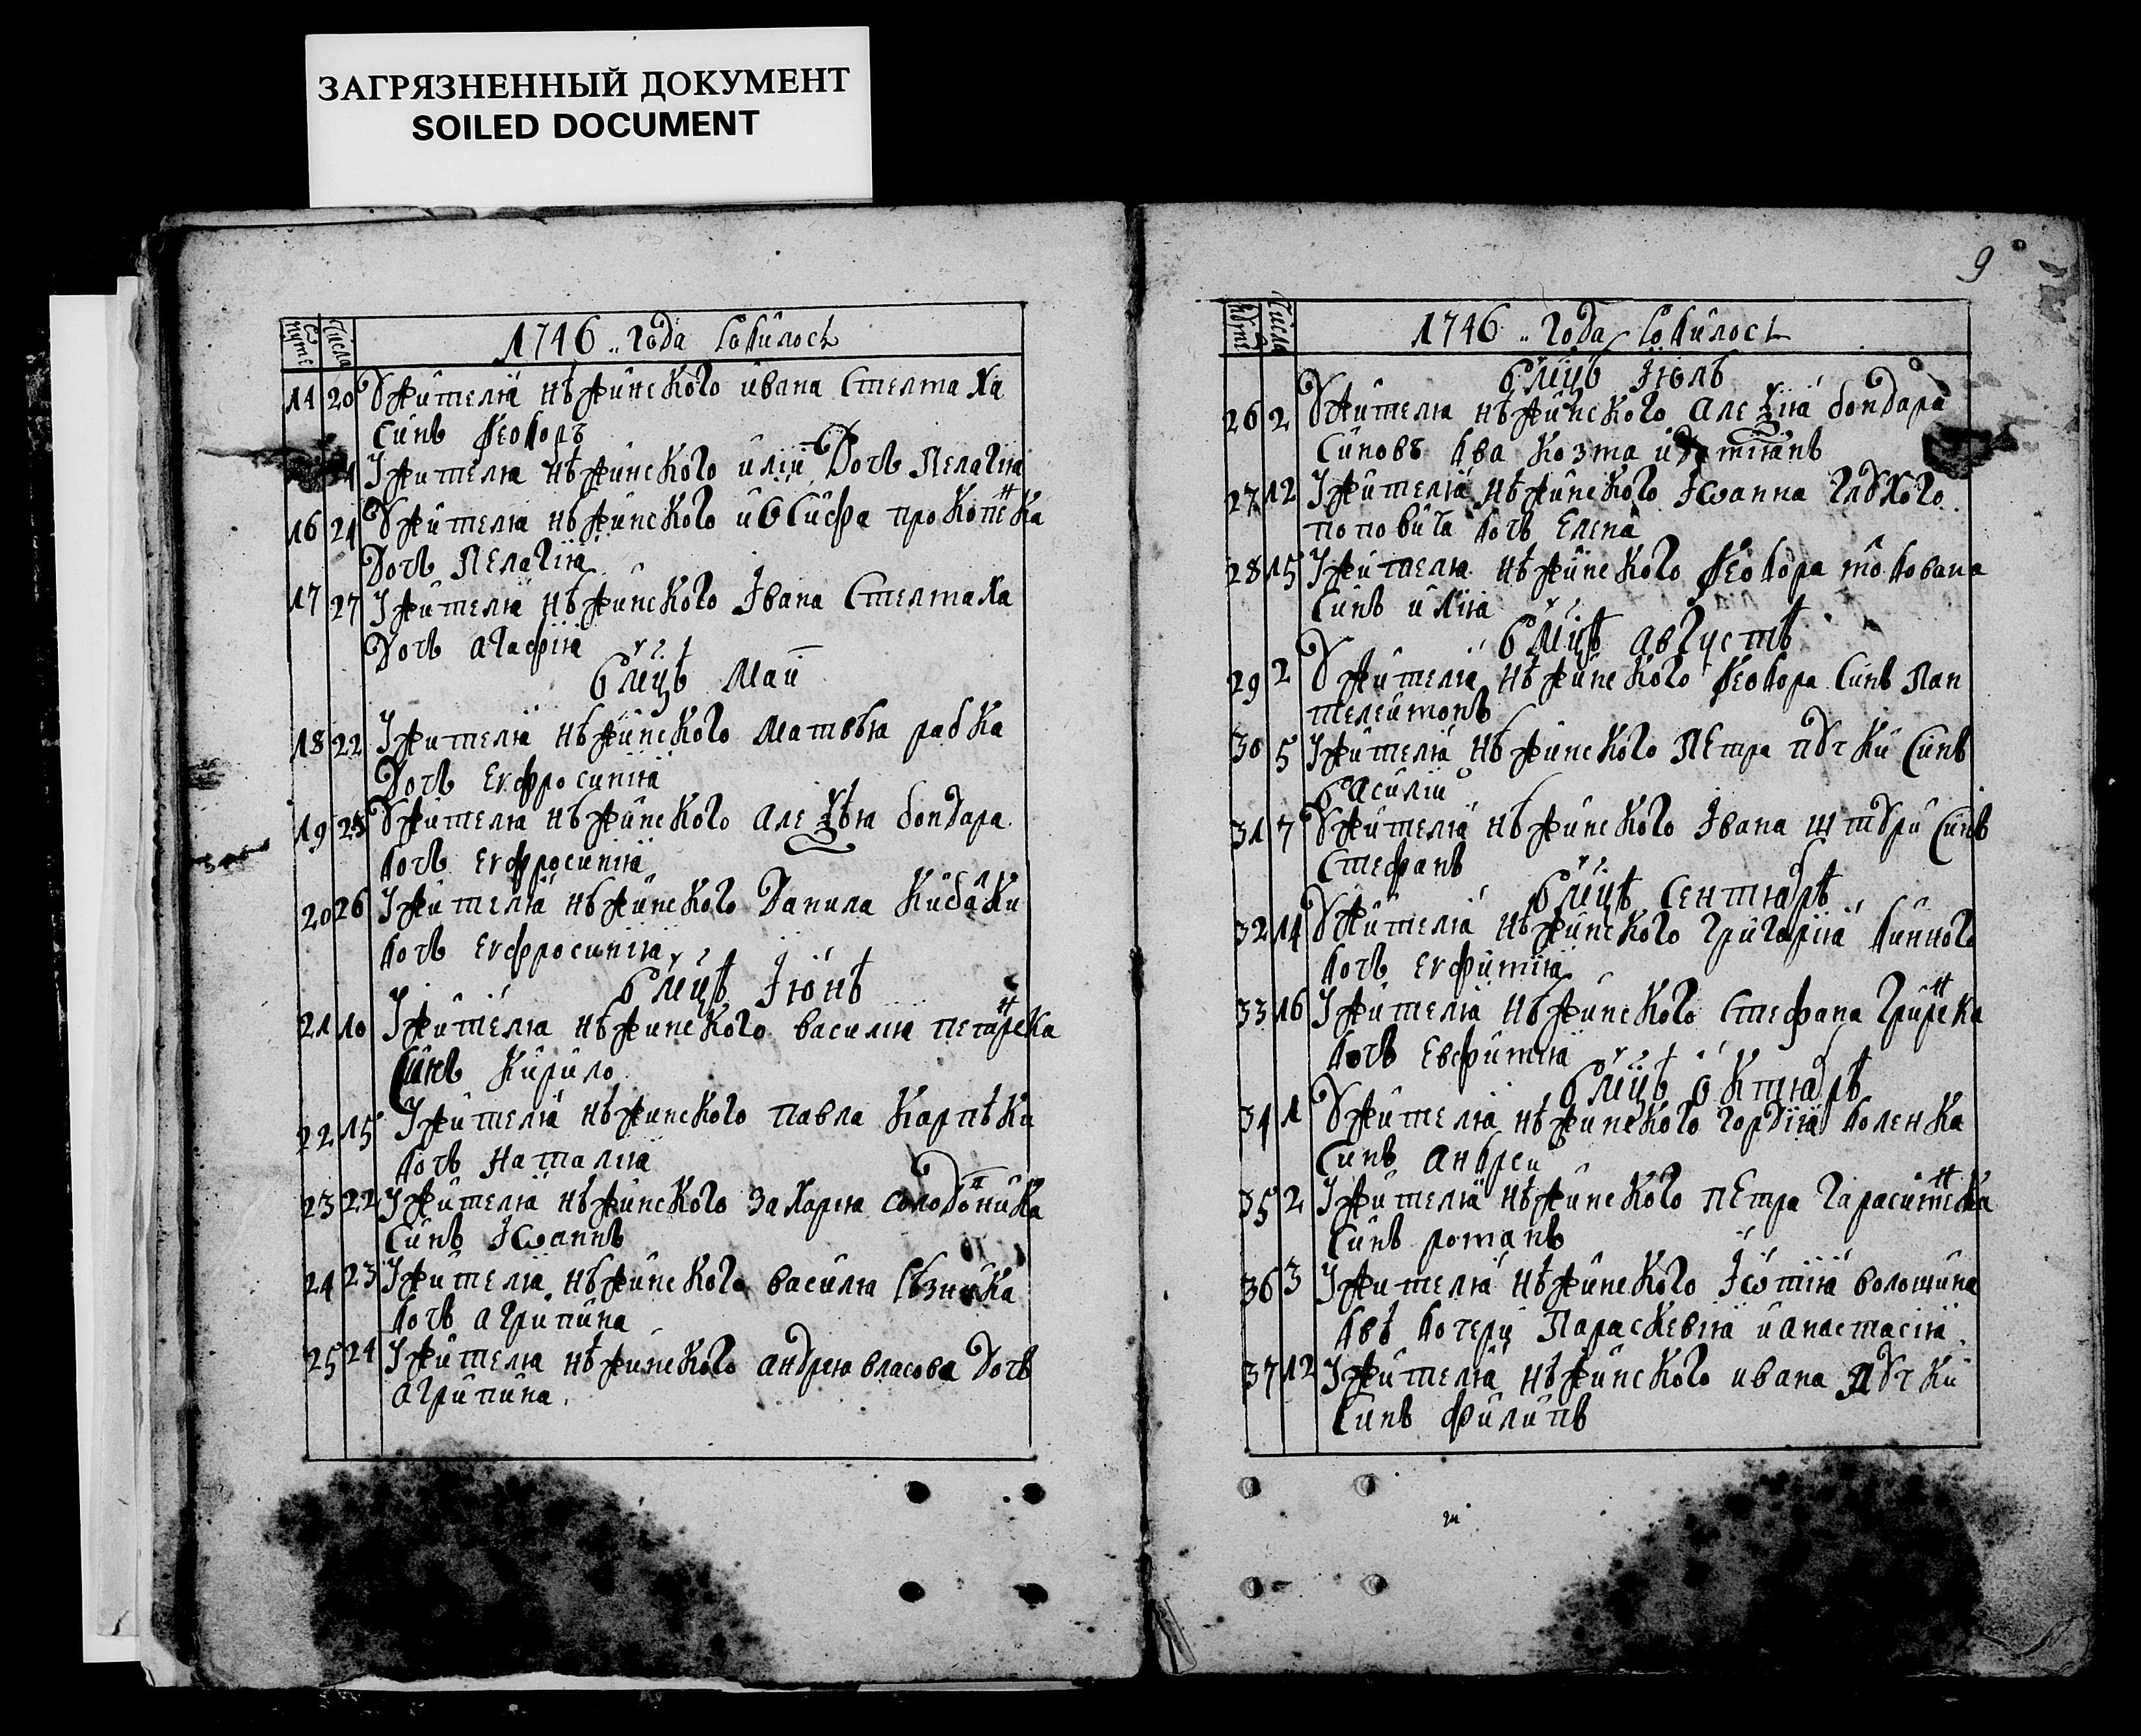 ЗАГРЯЗНЕННЫЙ ДОКУМЕНТ
SOILED DOCUMENT
Числа
1746 .. года родилось
14 20 Ꙋжителя нѣжинского ивана стелмаха
синъ феодоръ
Ужителя нѣжинского илии дочъ пелагия
16 24 Ꙋжителя нѣжинского иосифа прокопенка
дочъ пелагия
17 27 Ужителя нѣжинского Івана стелмаха
дочъ агафия
в мцѣ май
18 22 Ужителя нѣжинского матвѣя рабка
дочъ еѵфросиния
19 25 Ꙋжителя нѣжинского алеѯѣя бондара
дочъ еѵфросиния
20 26 Ужителя нѣжинского данила кибалки
дочъ еѵфросиния
в мцѣ Іюнѣ
21 10 Ужителя нѣжинского василия петренка
синъ кирило
22 15 Ужителя нѣжинского павла карпѣка
дочъ наталия
23 22 Ужителя нѣжинского захария солодовника
синъ Іѡаннъ
24 23 Ужителя нѣжинского василия рѣзника
дочъ агрипина
25 24 Ужителя нѣжинского андрея власова дочъ
агрипина.
9
Числа
1746 .. года родилось
в мцѣ Іюлѣ
26 2 Ꙋжителя нѣжинского алеѯия бондара
синовъ два козма и дамианъ
27 12 Ужителя нѣжинского Іѡанна глꙋхого
поповича дочъ елена
28 15 Ужителя нѣжинского феодора молдована
синъ илия
в мцѣ августѣ
29 2 Ꙋжителя нѣжинского феодора синъ пан
телеимонъ
30 5 Ужителя нѣжинского петра пꙋчки синъ
василий
31 7 Ꙋжителя нѣжинского Івана штꙋри синъ
стефанъ
в мцѣ сентябрѣ
32 14 Ꙋжителя нѣжинского григория винного
дочъ еѵфимия
33 16 Ужителя нѣжинского стефана гриценка
дочъ евфимия
в мцѣ октябрѣ
34 1 Ꙋжителя нѣжинского гордия доленка
синъ андрей
35 2 Ужителя нѣжинского петра гарасименка
синъ романъ
36 3 Ужителя нѣжинского волошина
двѣ дочери параскевия и анастасия.
37 12 Ужителя нѣжинского ивана пꙋчки
синъ филипъ